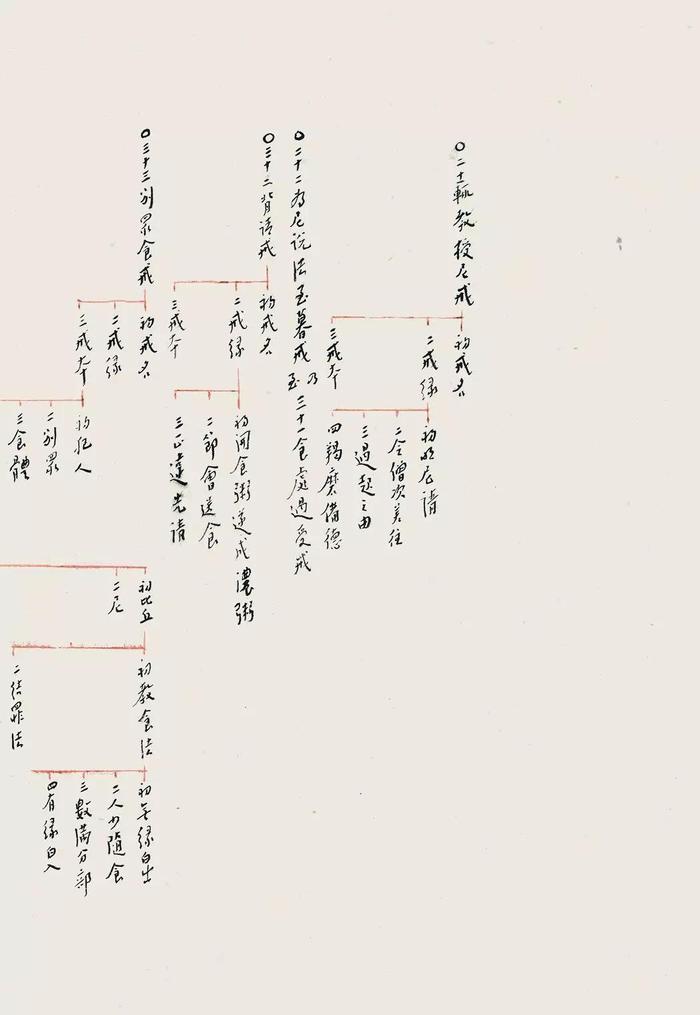 ○二十一輒教授尼戒
初戒名
二戒緣
三戒本
初明尼請
二令僧次差往
三過起之由
四羯磨備德
○二十二為尼說法至暮戒乃至三十一食處過受戒
○三十二背請戒
初戒名
二戒緣
三戒本
初開食粥遂成濃粥
二節會送食
三正違先請
○三十三別眾食戒
初戒名
二戒緣
三戒本
初犯人
二別眾
三食體
初比丘
二尼
初教食法
二結罪法
初無緣白出
二人少隨食
三數滿分部
四有緣白入